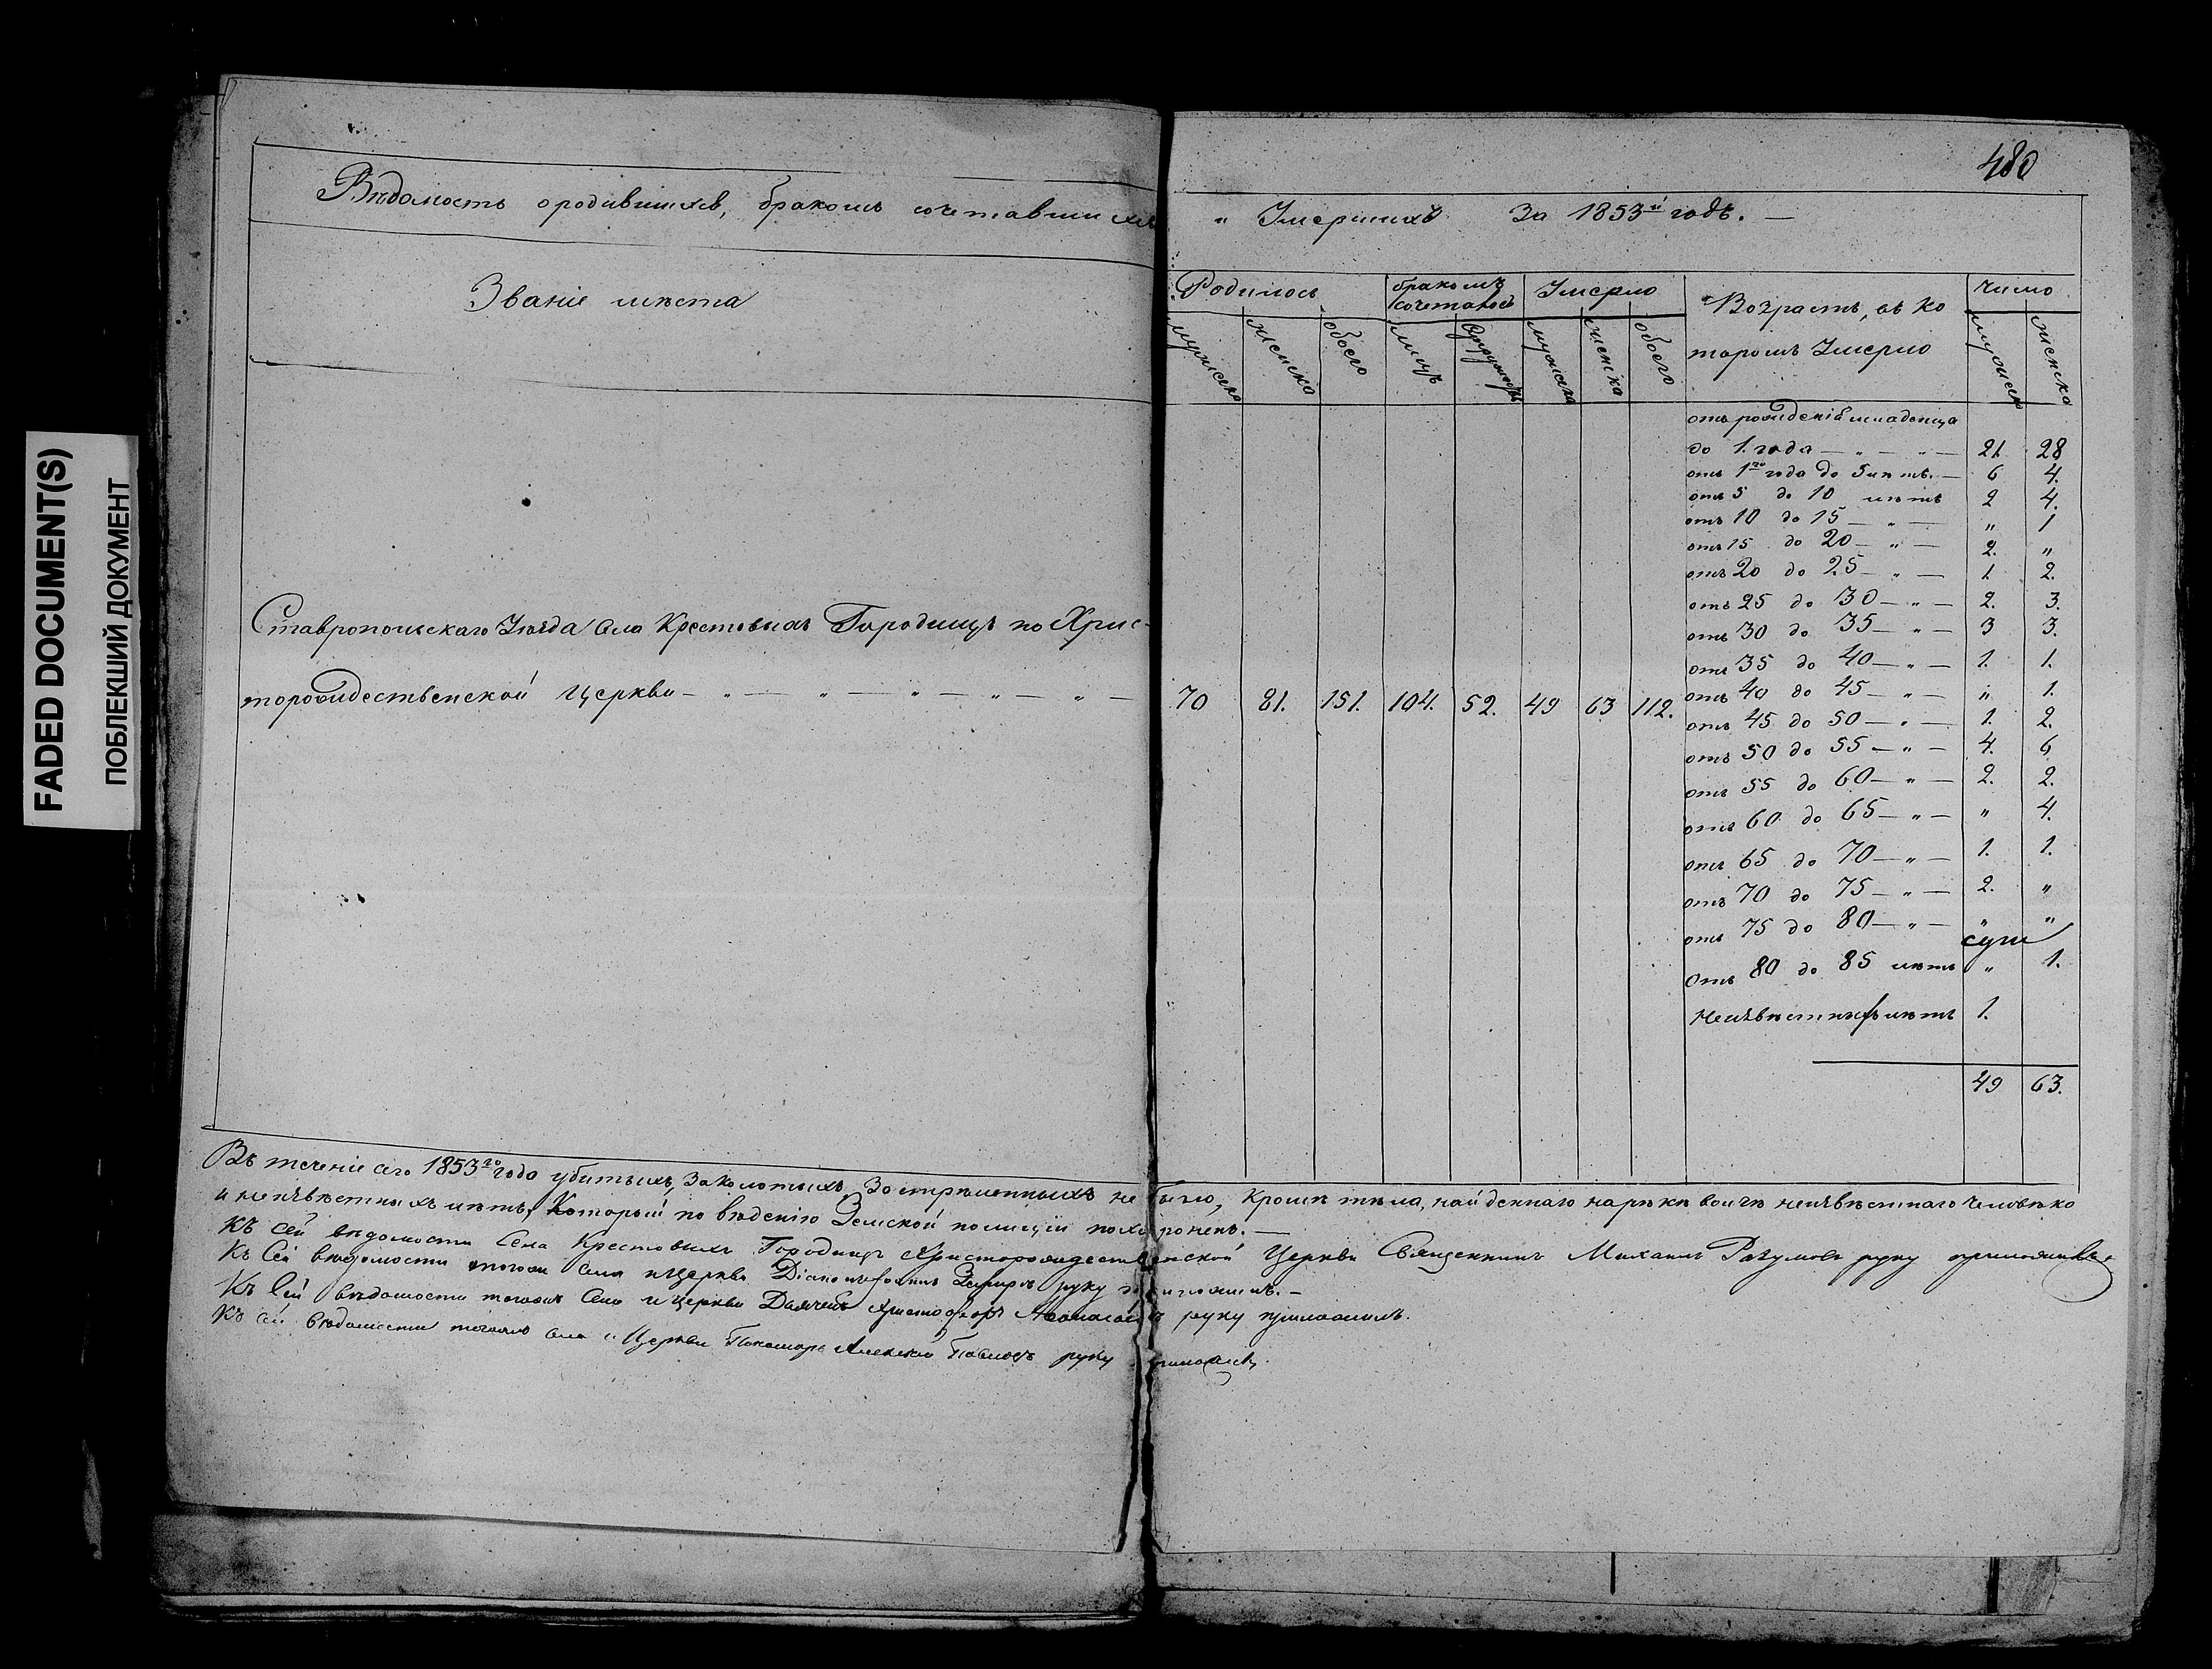 FADED DOCUMENT(S)
ПОБЛЕКШИЙ ДОКУМЕНТ
480
Вѣдомость о родившихся, бракомъ сочетавшихся и Умершихъ За 1853й годъ. —
Званіе мѣста
Родилось
бракомъ сочеталось
Умерло
Возрастъ, въ ко
торомъ Умерло
Число
мужеска
женска
обоего
лицъ
Супружествъ
мужеска
женска
обоего
мужеска
женска
отъ рожденія младенца
до 1. года — „ — „ — 21 28
отъ 1го года до 5 лѣтъ. — 6 4.
отъ 5 до 10 лѣтъ 2 4.
отъ 10 до 15 — „ — „ 1
отъ 15 до 20 — „ — 2. „
отъ 20 до 25 — „ — 1 2.
отъ 25 до 30 — „ — 2. 3.
отъ 30 до 35 — „ — 3 3.
отъ 35 до 40 — „ — 1. 1.
отъ 40 до 45 — „ — „ 1.
отъ 45 до 50 — „ — 1. 2.
отъ 50 до 55 — „ — 4. 6
отъ 55 до 60 — „ — 2. 2.
отъ 60 до 65 — „ — „ 4.
отъ 65 до 70 — „ — 1. 1.
отъ 70 до 75 — „ — 2. „
отъ 75 до 80 — „ — „ „
отъ 80 до 85 лѣтъ „ 1.
Неизвѣстныхъ лѣтъ 1.
49 63.
Ставропольскаго Уѣзда Села Крестовыхъ Городищъ по Хрис-
торождественской Церкви — „ — „ — „ — „ — „ — 70 81. 151. 104. 52. 49 63 112.
Въ теченіе сего 1853го года убитыхъ, Заколотыхъ, Застрѣленныхъ не было, Кромѣ тѣла, найденнаго на рѣкѣ Волгѣ неизвѣстнаго Человѣка
и неизвѣстныхъ лѣтъ, Который по вѣденію Земской полиціи похороненъ. —
Къ сей вѣдомости Села Крестовыхъ Городищъ Христорождественской Церкви Священникъ Михаилъ Разумовъ руку приложилъ.
Къ Сей вѣдомости тогожъ Села и Церкви Діаконъ руку приложилъ. —
Къ Сей вѣдомости тогожъ Села и Церкви Дьячекъ Христофоръ руку приложилъ.
Къ сей вѣдомости тогожъ села и Церкви Пономарь Алексѣй Павловъ руку приложилъ.